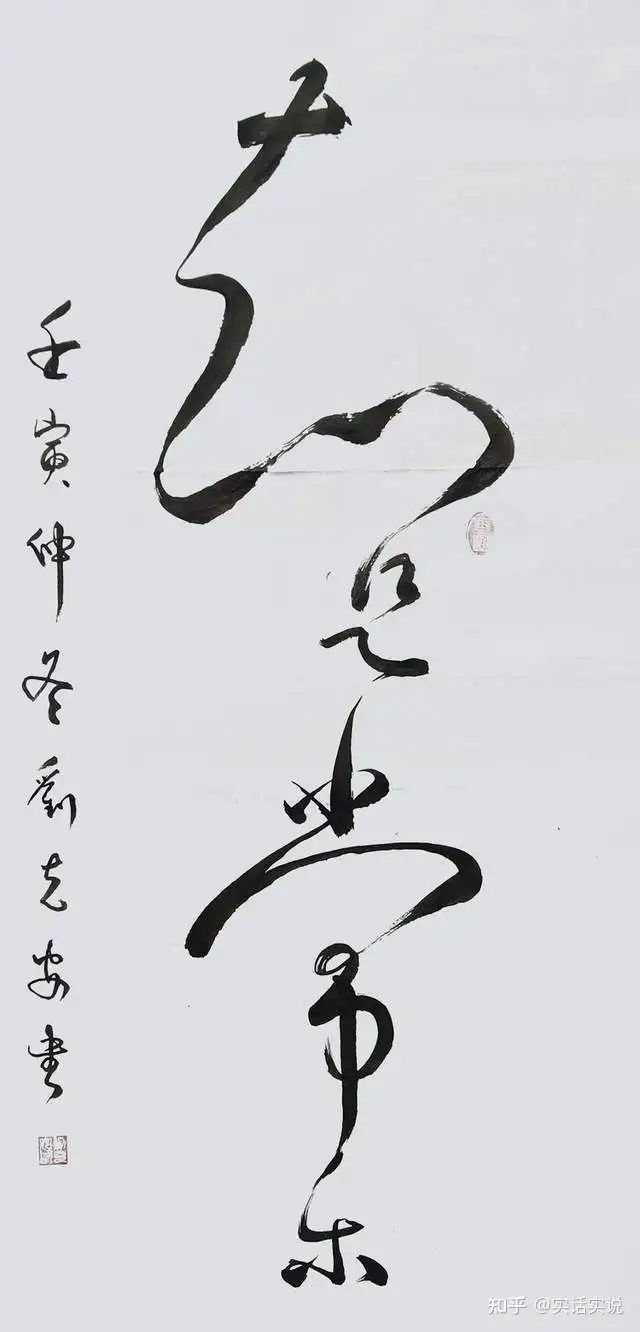 知足常乐
壬寅仲冬劉克安書
知乎 @实话实说